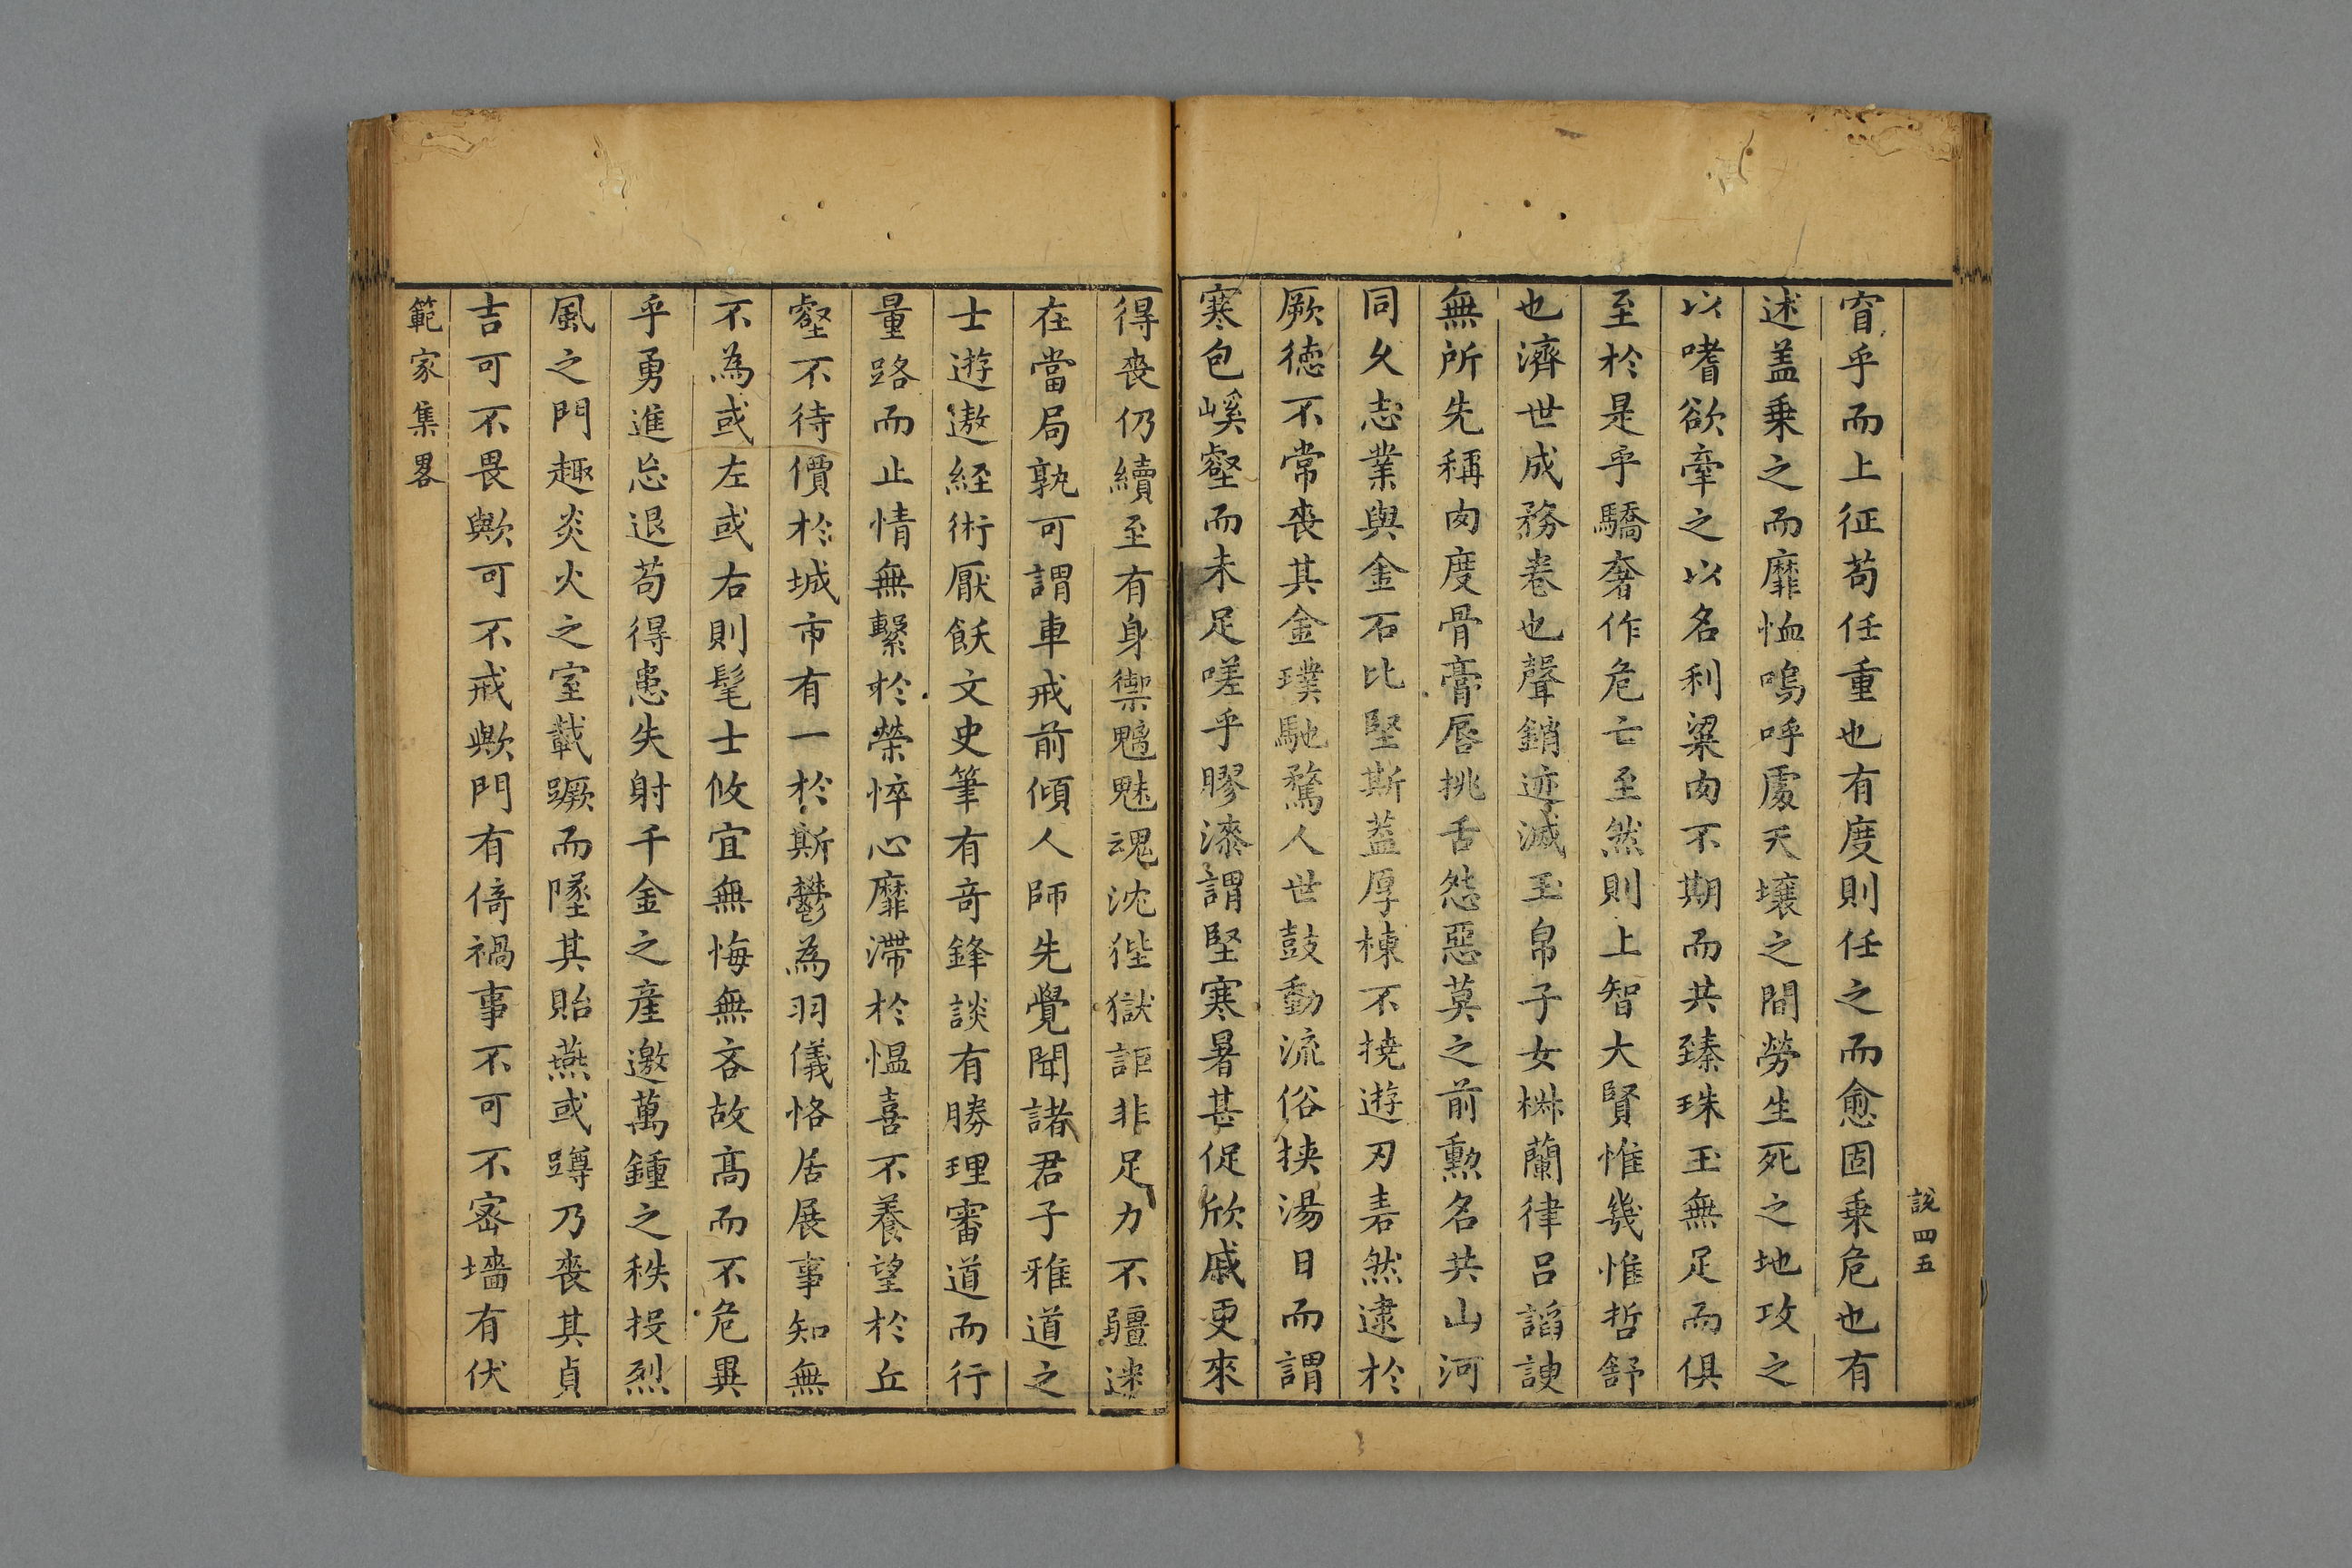 說四五
窅乎而上征苟任重也有度則任之而愈固乗危也有
述盖乗之而靡恤嗚呼處天壤之間勞生死之地攻之
以嗜欲牽之以名利粱肉不期而共臻珠玉無足而俱
至於是乎驕奢作危亡至然則上智大賢惟幾惟哲舒
也濟世成務卷也聲銷迹滅玉帛子女椒蘭律呂謟諛
無所先稱肉度骨膏唇挑舌怨惡莫之前勲名共山河
同久志業與金石比堅斯葢厚棟不撓遊刃砉然逮於
厥德不常喪其金璞馳騖人世鼓動流俗挾湯日而謂
寒包嵠壑而未足嗟乎膠漆謂堅寒暑甚促欣戚更來
得喪仍續至有身禦魑魅魂沈狴獄詎非足力不疆迷
在當局孰可謂車戒前傾人師先覺聞諸君子雅道之
士遊遨経術厭飫文史筆有竒鋒談有勝理審道而行
量路而止情無繫於榮悴心靡滯於愠喜不養望於丘
壑不待價於城市有一於斯鬱為羽儀恪居展事知無
不為或左或右則髦士攸宜無悔無吝故髙而不危異
乎勇進忘退苟得患失射千金之産邀萬鍾之秩投烈
風之門趣炎火之室載蹶而墜其貽燕或蹲乃喪其貞
吉可不畏歟可不戒歟門有倚禍事不可不密墻有伏
範家集畧